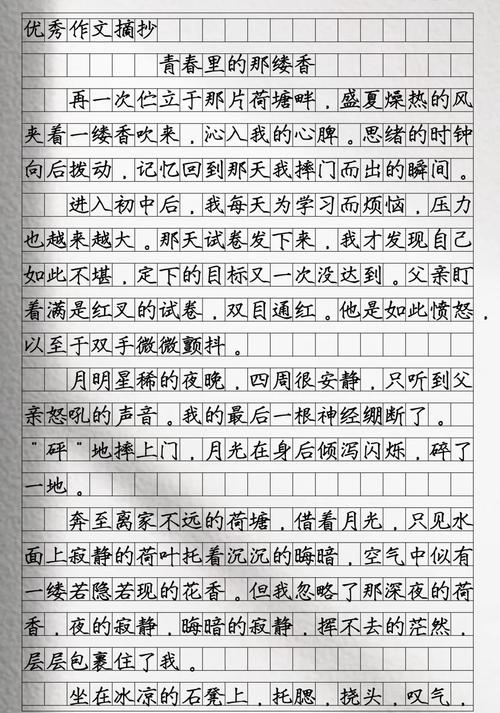 优秀作文摘抄
青春里的那缕香
再一次伫立于那片荷塘畔，盛夏燥热的风
夹着一缕香吹来，沁入我的心脾。思绪的时钟
向后拨动，记忆回到那天我摔门而出的瞬间。
进入初中后，我每天为学习而烦恼，压力
也越来越大。那天试卷发下来，我才发现自己
如此不堪，定下的目标又一次没达到。父亲盯
着满是红叉的试卷，双目通红。他是如此愤怒，
以至于双手微微颤抖。
月明星稀的夜晚，四周很安静，只听到父
亲怒吼的声音。我的最后一根神经绷断了。
“砰”地摔上门，月光在身后倾泻闪烁，碎了
一地。
奔至离家不远的荷塘，借着月光，只见水
面上寂静的荷叶托着沉沉的晦暗，空气中似有
一缕若隐若现的花香。但我忽略了那深夜的荷
香，夜的寂静，晦暗的寂静，挥不去的茫然，
层层包裹住了我。
坐在冰凉的石凳上，托腮，挠头，叹气，